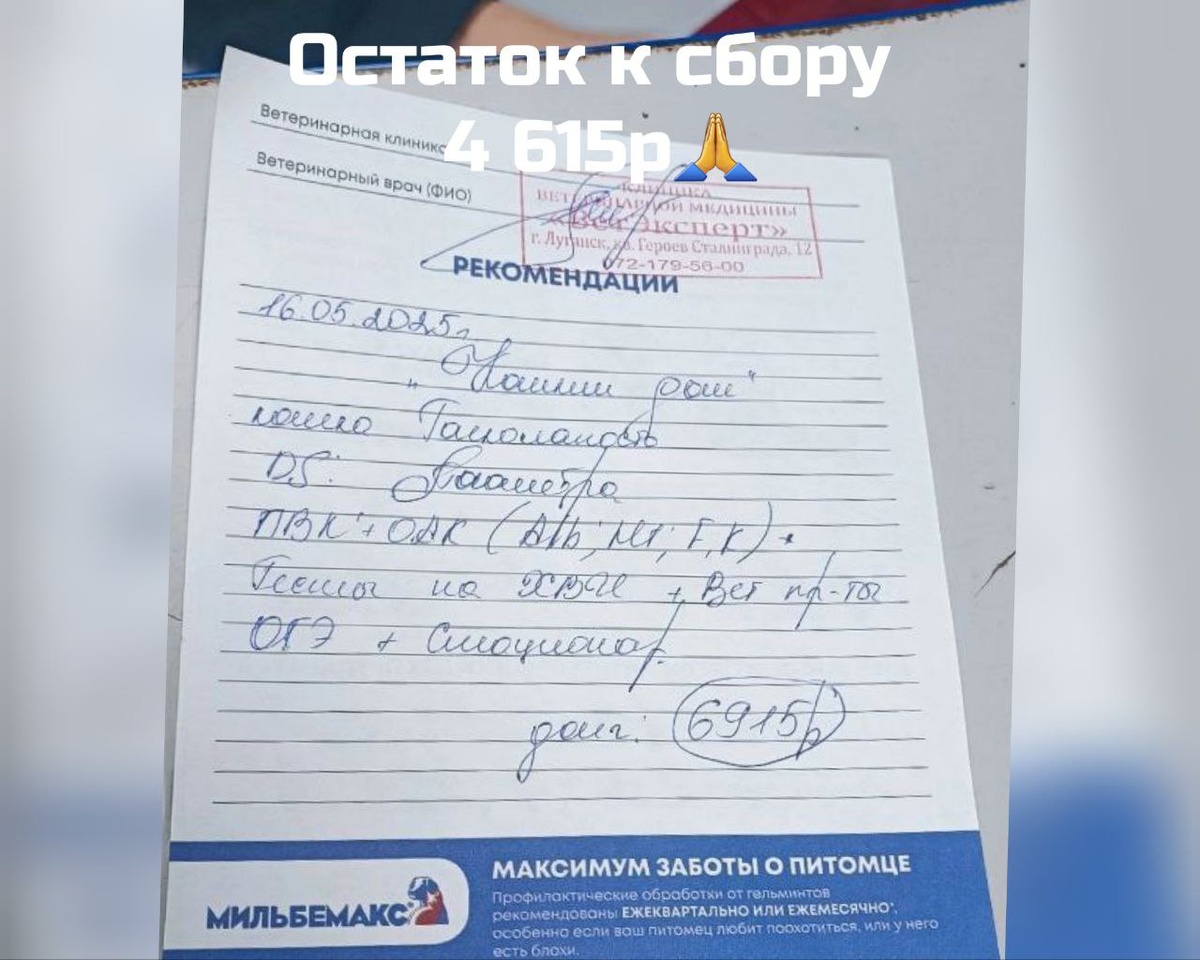 Остаток к сбору
4 615р🙏
Ветеринарная клиника
Ветеринарный врач (ФИО)
КЛИНИКА
ВЕТЕРИНАРНОЙ МЕДИЦИНЫ
«ВетЭксперт»
г. Луганск, кв. Героев Сталинграда, 12
072-179-56-00
РЕКОМЕНДАЦИИ
16.05.2025г.
"Кошкин дом"
кошка
DS: Пиометра
ПВК + ОАК
Тесты на + Вет пр-ты
ОГЭ + Стационар.
долг: 6915р
МИЛЬБЕМАКС
МАКСИМУМ ЗАБОТЫ О ПИТОМЦЕ
Профилактические обработки от гельминтов
рекомендованы ЕЖЕКВАРТАЛЬНО ИЛИ ЕЖЕМЕСЯЧНО*,
особенно если ваш питомец любит поохотиться, или у него
есть блохи.